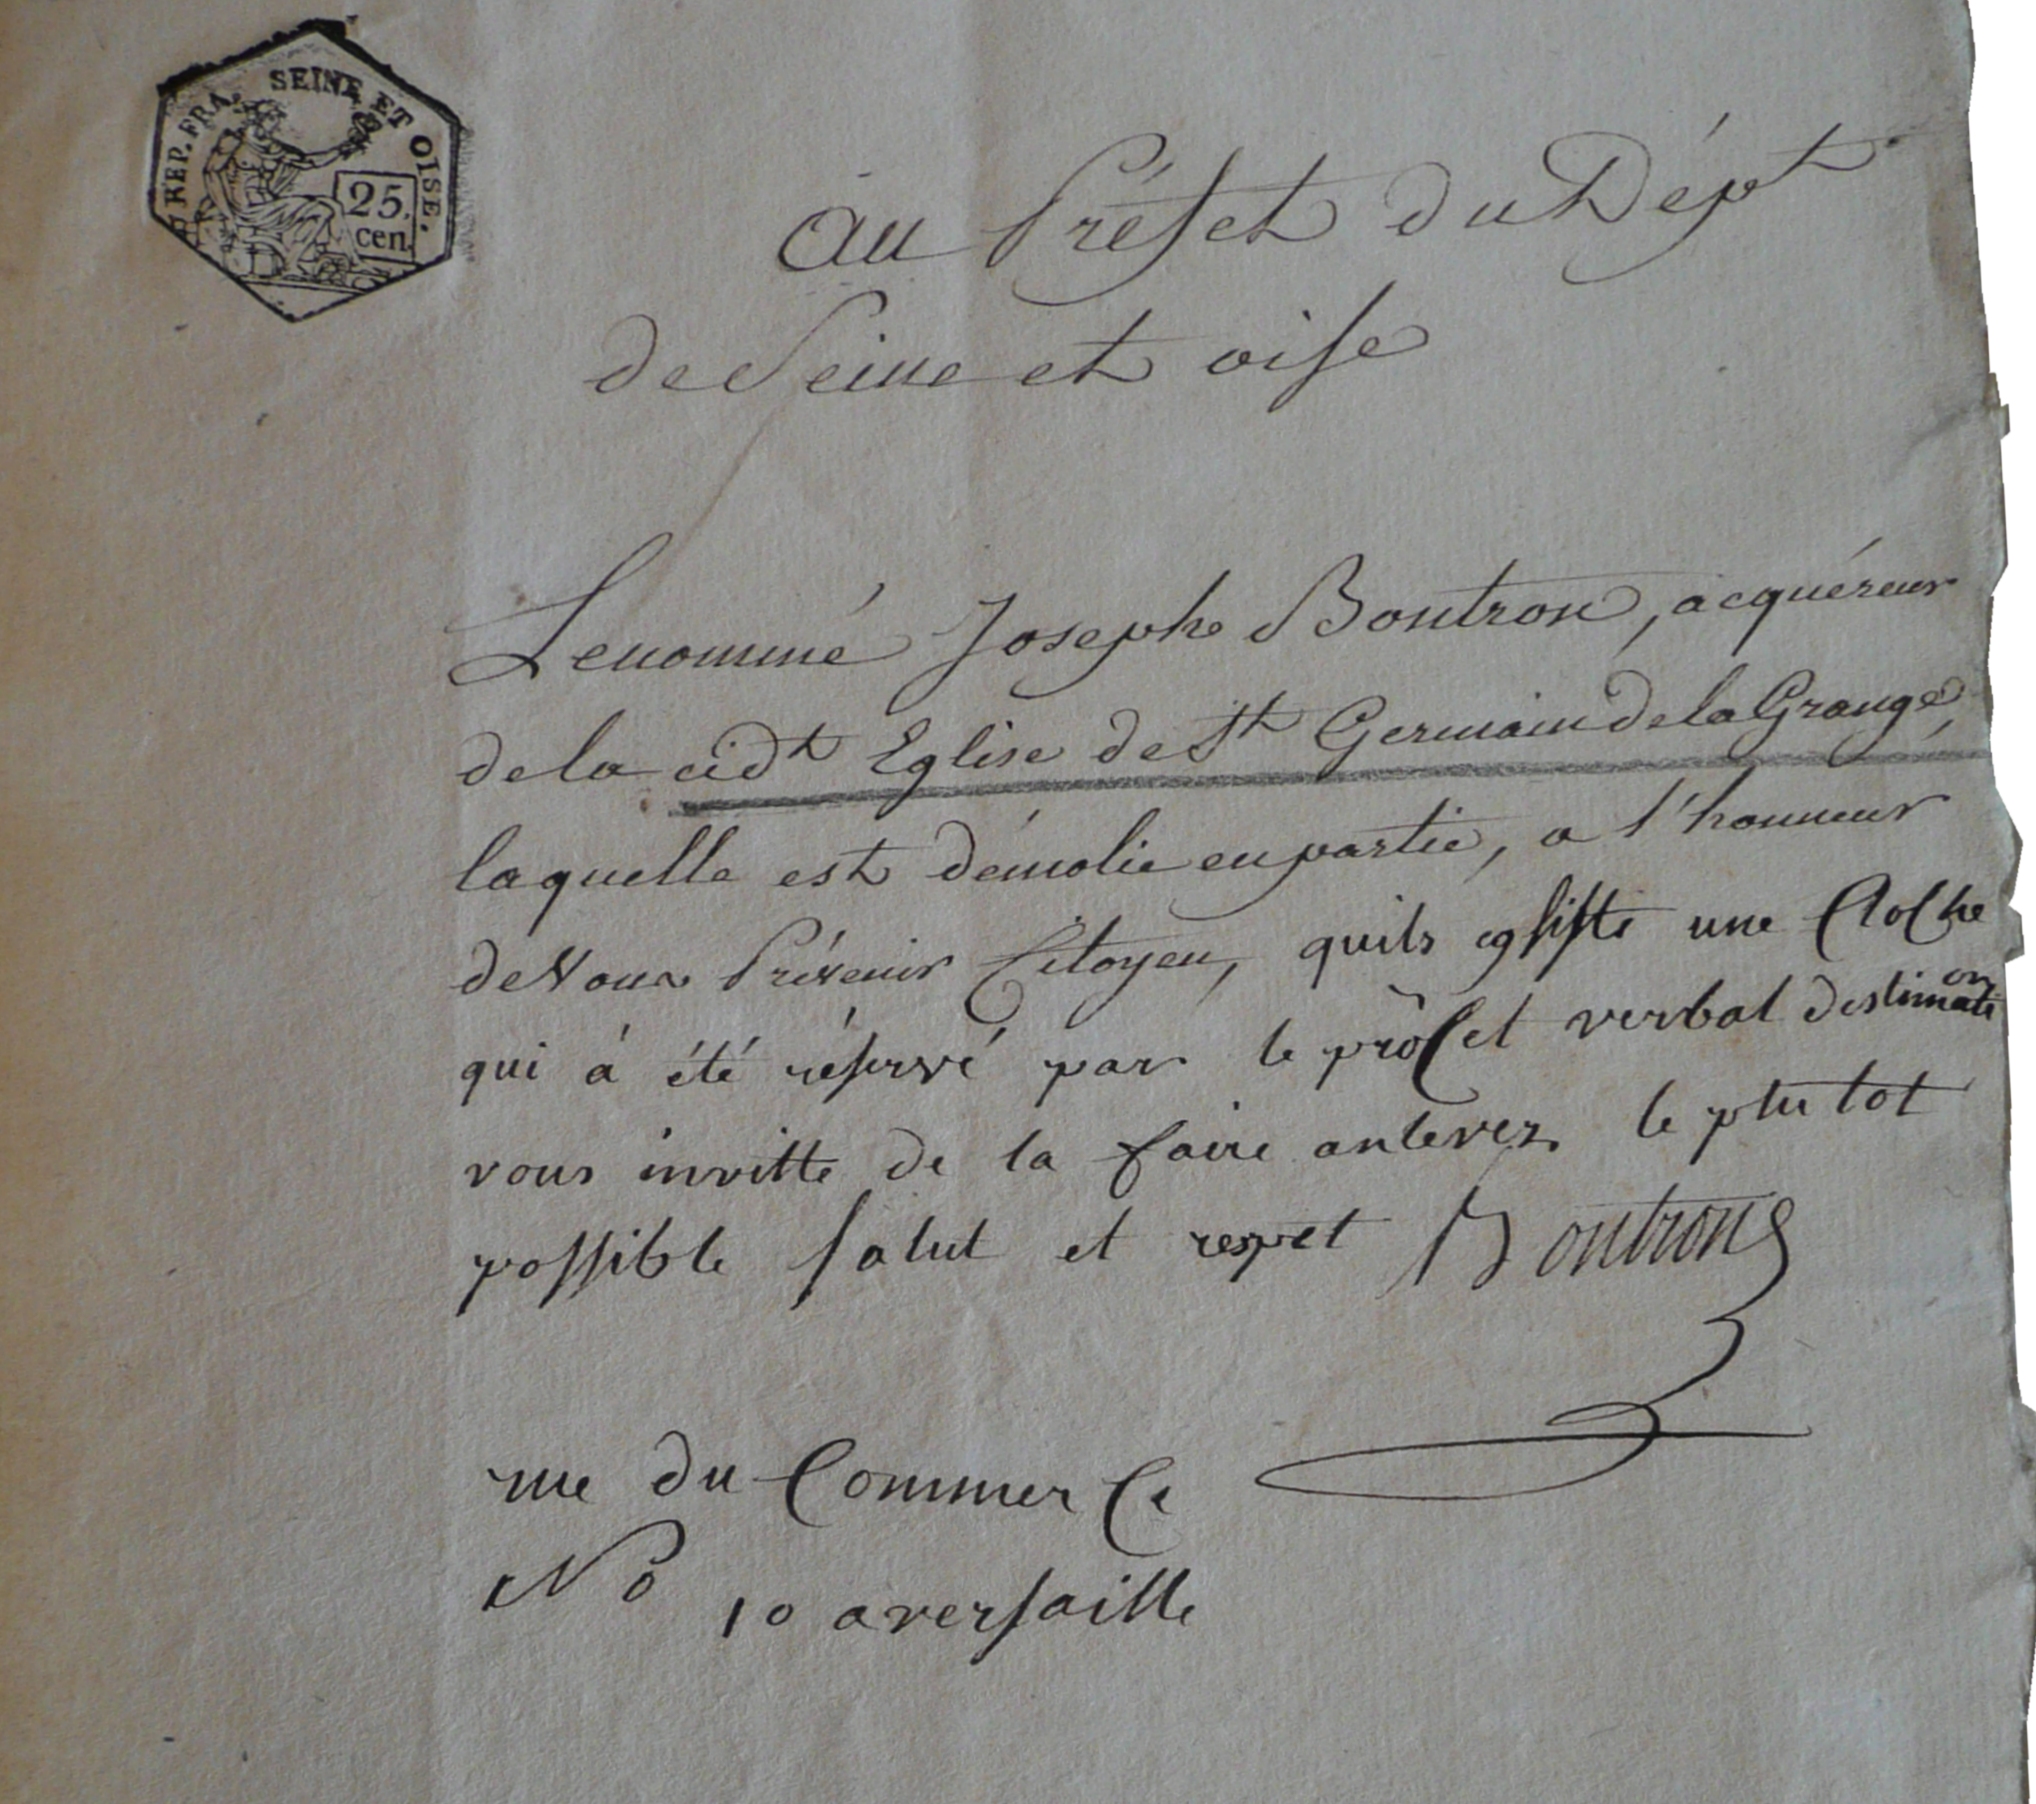 REP. FRA. SEINE ET OISE.
25.
cen.
Au Préfet du Dépt
de Seine et oise
Le nommé Joseph Boutron, acquéreur
de la cidt Eglise de St Germain de la Grange,
laquelle est démolie en partie, a l'honneur
de Vous Prévenir Citoyen, quils egsiste une Cloche
qui à été réservé par le procet verbal destimation
vous invitte de la faire anlevez le plu tot
possible salut et respet Boutron
rue du Commerce
No 10 a versaille